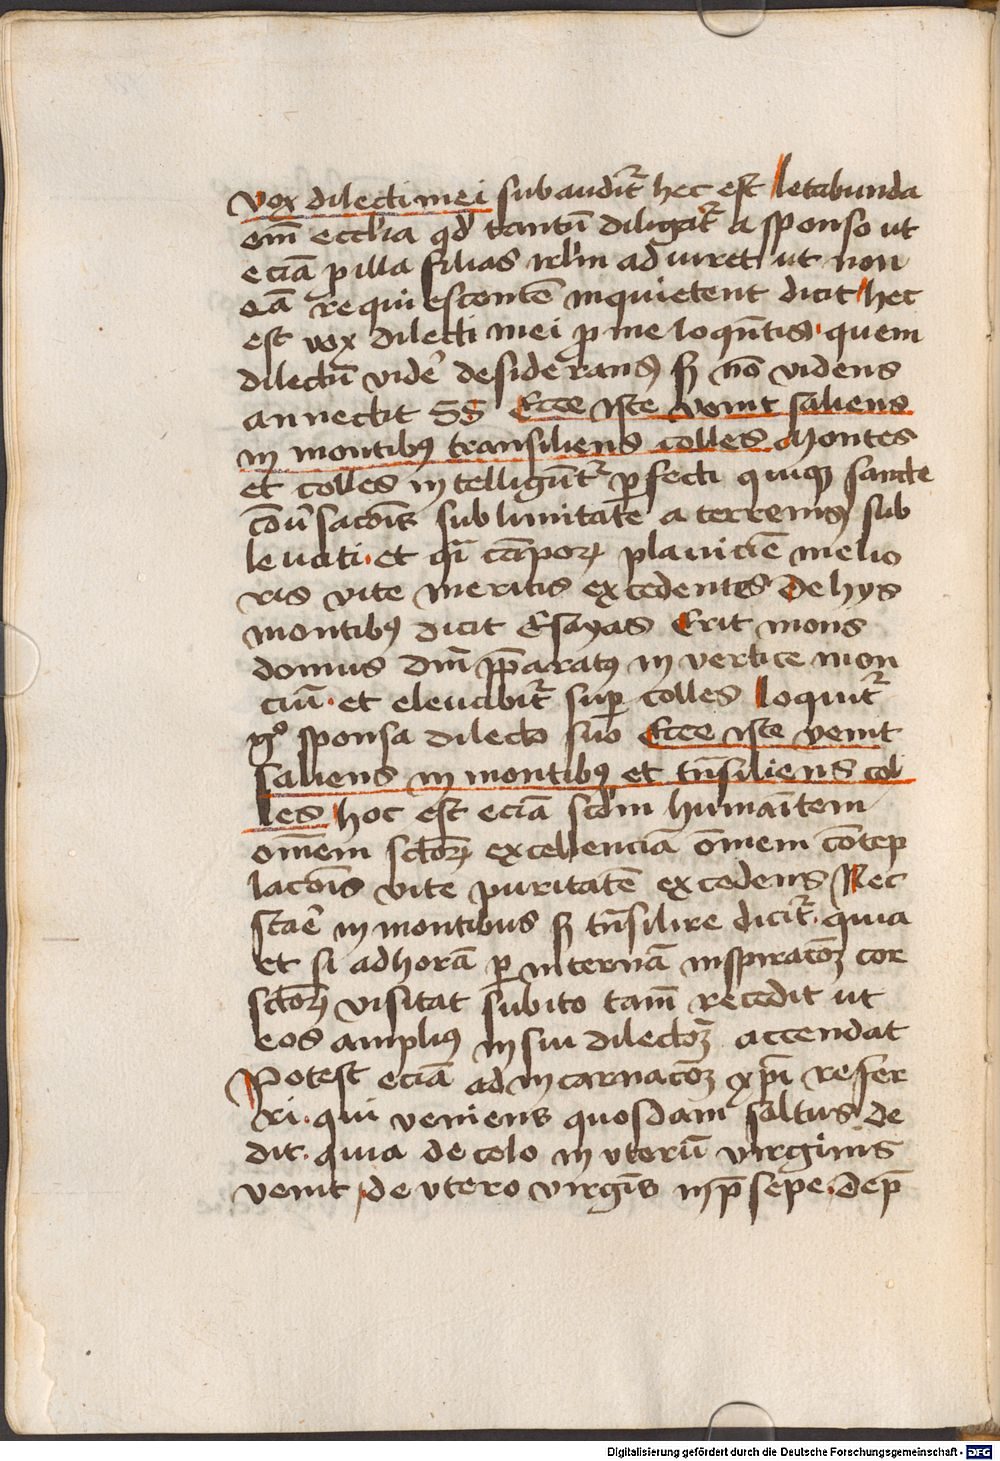 vox dilecti mei subaudit᷑ hec est letabunda
em̅ ecclia qd tantu̅ diligat᷑ a sponso ut
ecia̅ p illa filias irlm adiuret ut non
ea̅ requiescente̅ inquietent dicit hec
est vox dilecti mei p me loqn̅tis · quem
dilectu̅ vide᷑ desiderans sꝫ no̅ videns
annectit SS Ecce iste venit saliens
in montibꝰ transiliens colles Montes
et colles intelligu̅t᷑ p̱fecti quiqꝫ sancte
co̅uˀsaco̅is sublimitate̅ a terrenis sub
leuati · et qi̅ ca̅poꝝ planicie̅ melio
ris vite meritis excedentes De hys
montibꝰ dicit Esayas Erit mons
domus dni̅ pp̅aratꝰ in vertice mon
ciu̅ · et eleuabit᷑ sup̱ colles loquit᷑
gͦ sponsa dilecto suo Ecce iste venit
saliens in montibꝰ et tn̅siliens col
les hoc est ecia̅ scdm humai̅tem
om̅em sctoꝝ excellencia̅ om̅em co̅tep
laco̅is vite puritate̅ excedens Nec
stae᷑ in montibus sꝫ tn̅silire dicit᷑ · quia
et si ad hora̅ p̱ interna̅ inspiraco̅ꝫ cor
sctoꝝ visitat subito tam̅ recedit ut
eos ampliꝰ in sui dilecto̅ꝫ accendat
Potest ecia̅ ad incarnaco̅ꝫ xpi̅ refer
ri · qui veniens quosdam saltus de
dit · quia de celo in vteru̅ virginis
venit de vtero virgi̅s in p̅sepe · de p̅
Digitalisierung gefördert durch die Deutsche Forschungsgemeinschaft - DFG